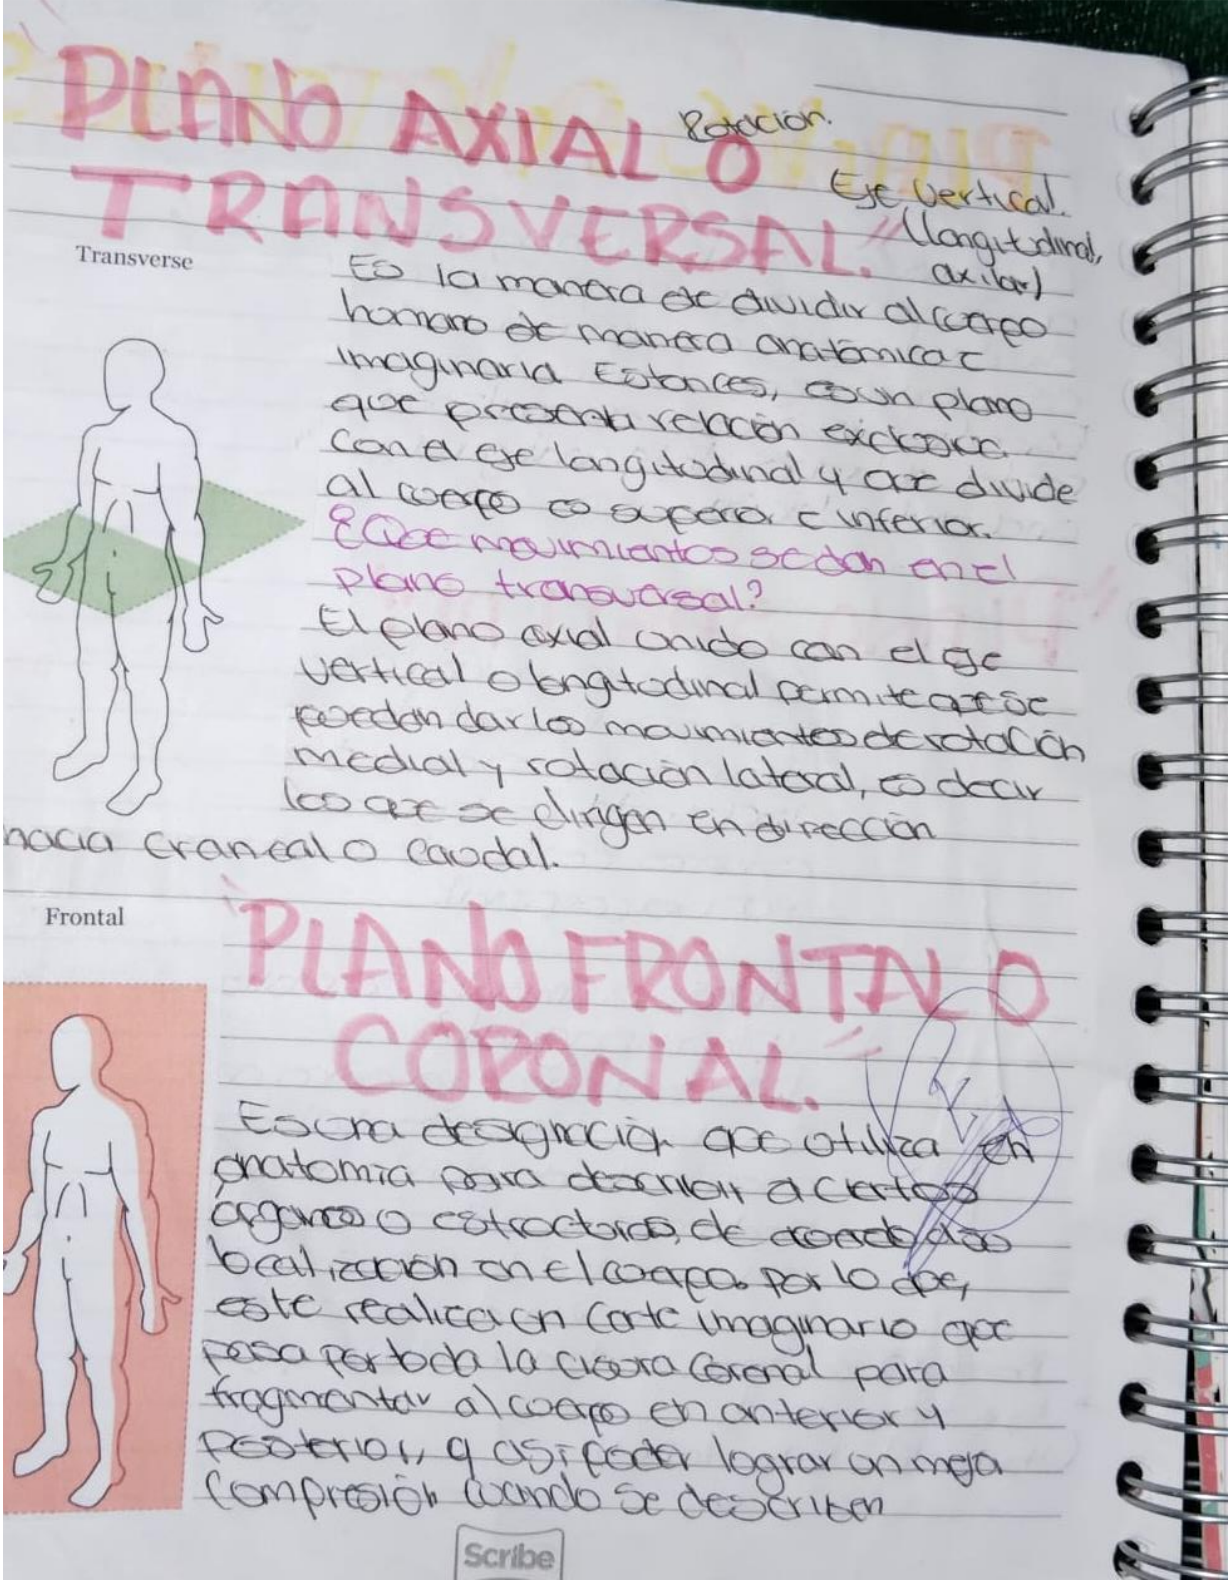 PLANO AXIAL O
Rotación.
TRANSVERSAL."
Eje Vertical.
(longitudinal,
axilar)
Transverse
Es la manera de dividir al cuerpo
humano de manera anatómica e
imaginaria Estonces, es un plano
que presenta relación exclusiva
con el eje longitudinal y que divide
al cuerpo es superior e inferior.
¿Que movimientos se dan en el
plano transversal?
El plano axial unido con el eje
vertical o longitudinal permite que se
puedan dar los movimientos de rotación
medial y rotación lateral, es decir
los que se dirigen en dirección
hacia craneal o caudal.
Frontal
"PLANO FRONTAL O
CORONAL."
Es una designación que utiliza en
anatomía para describir a ciertos
organos o estructuras, de acuerdo a su
localización en el cuerpo. por lo que,
este realiza un corte imaginario que
pasa por toda la cisura coronal para
fragmentar al cuerpo en anterior y
posterior, y asi poder lograr un mejor
compresión cuando se describen
Scribe